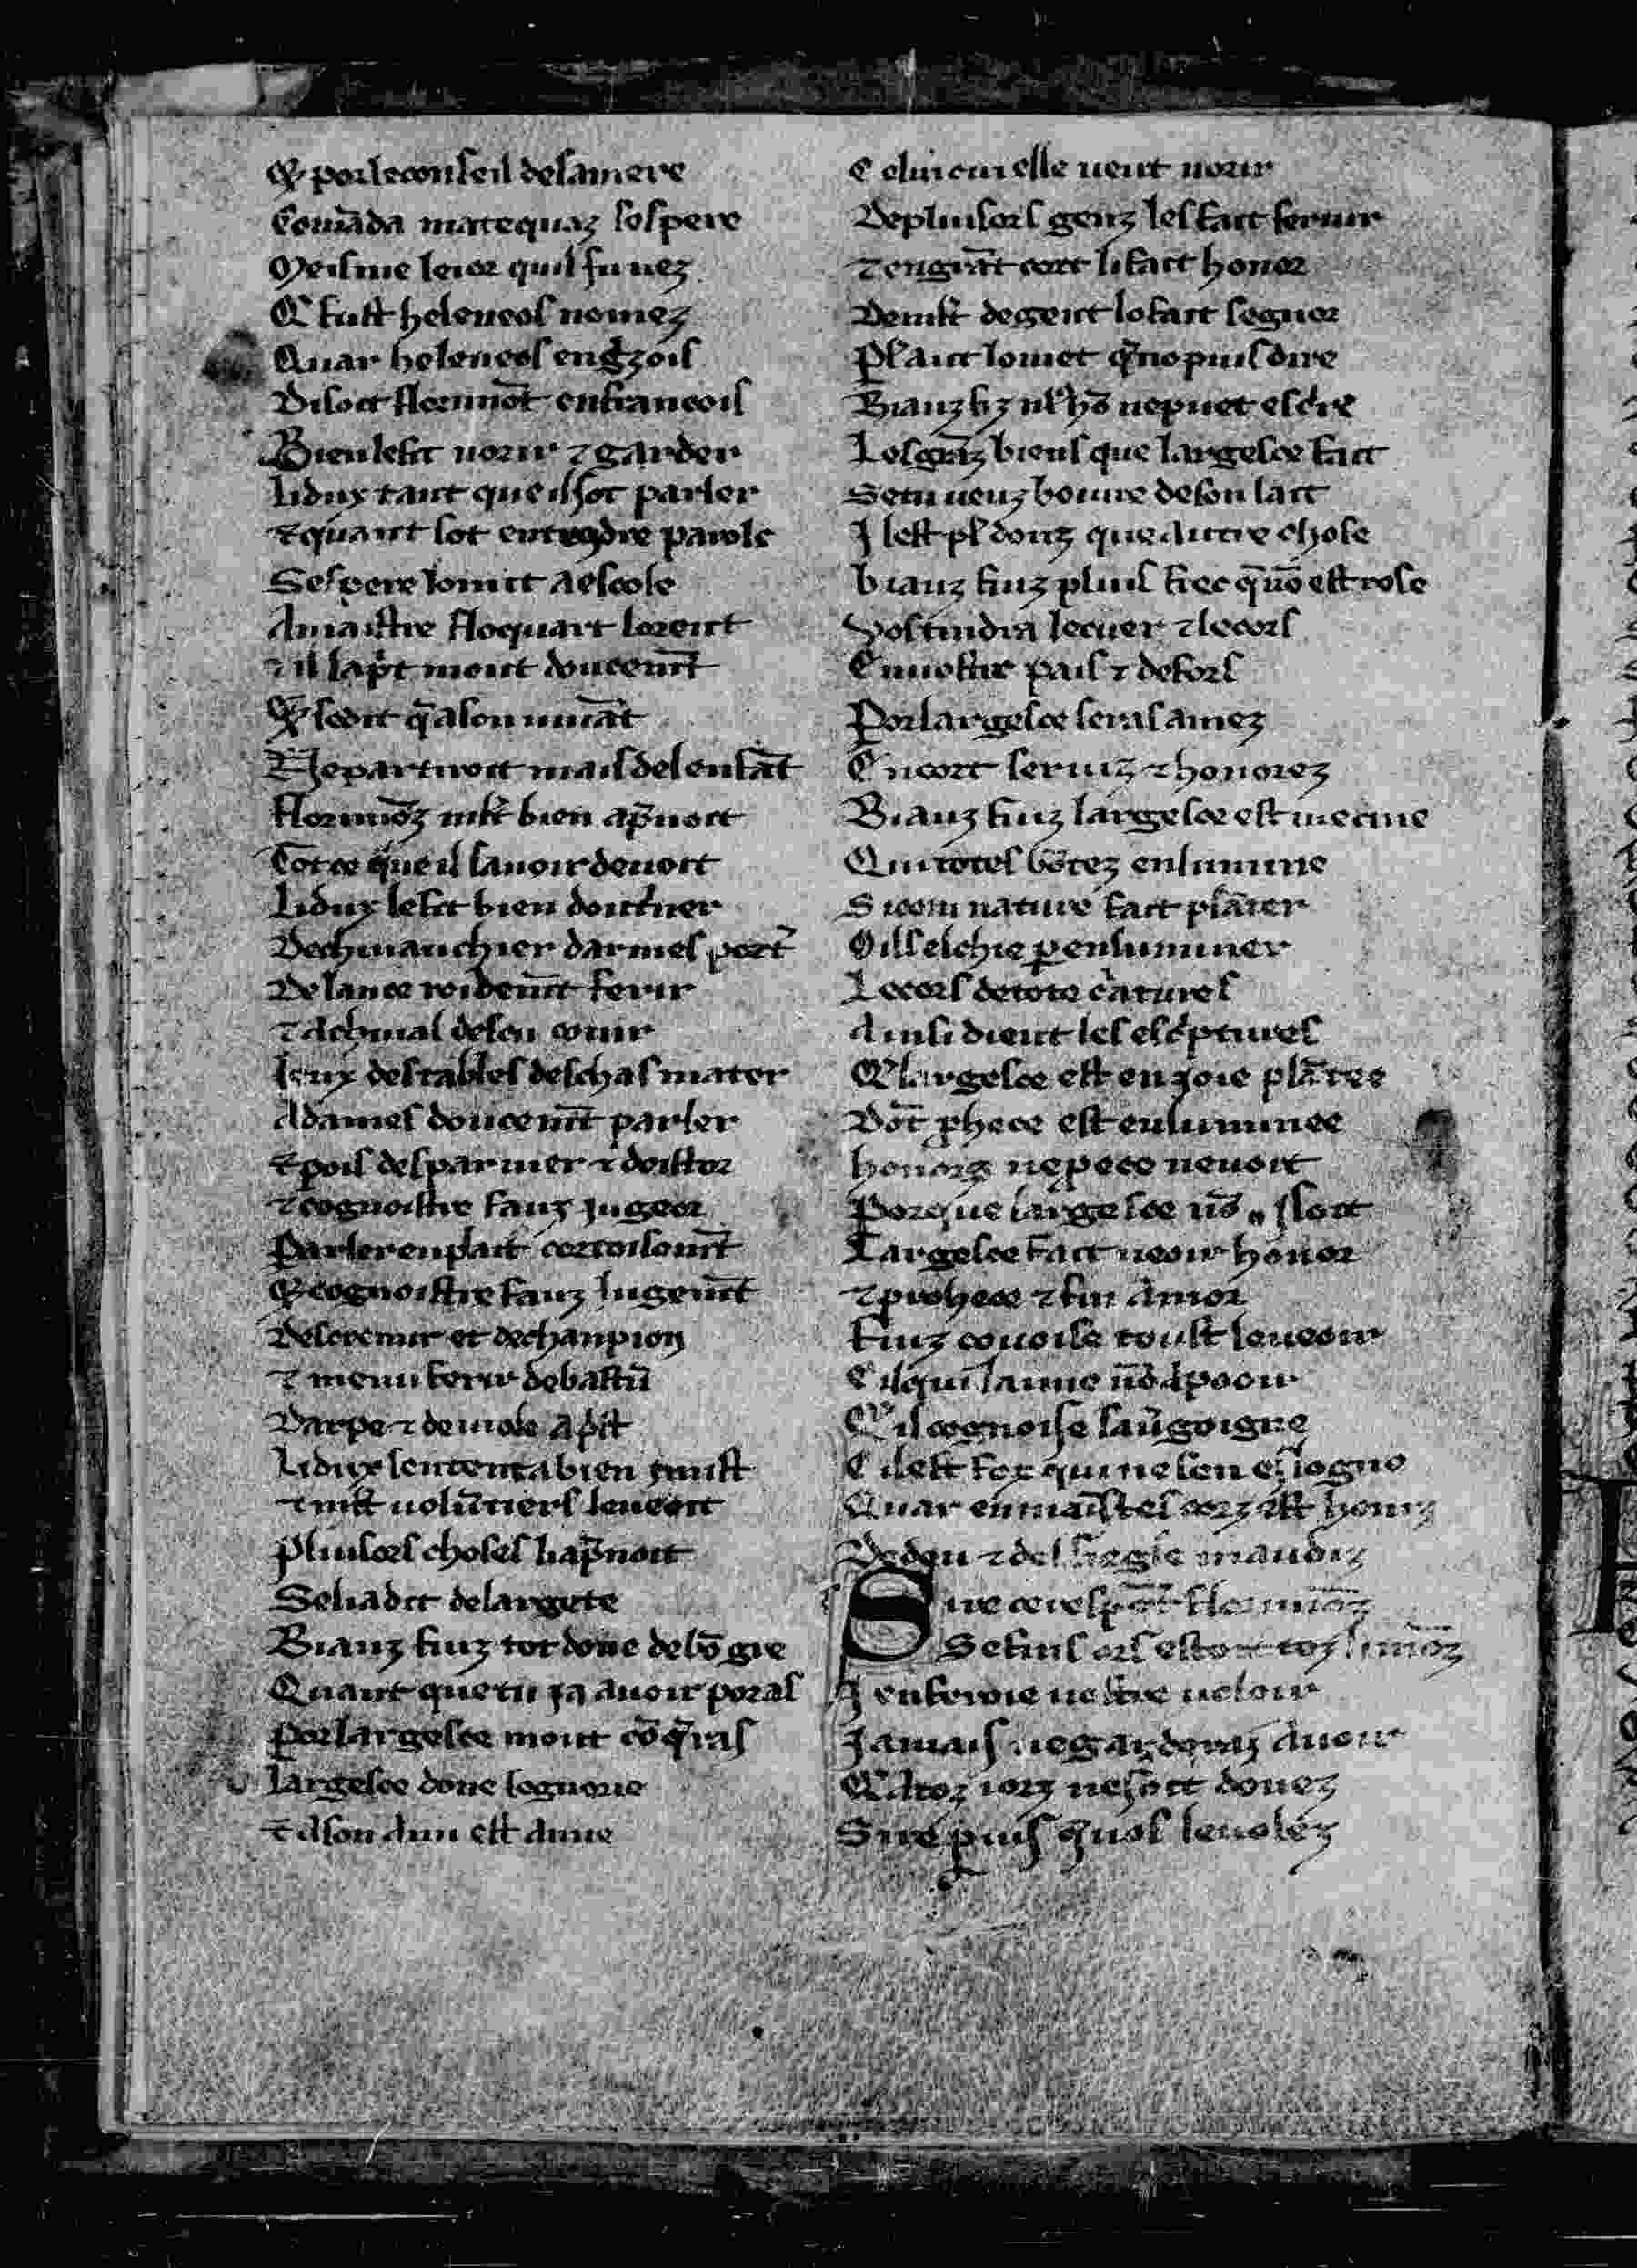 Et por le conseil de sa mere
Comāda matequaz ses pere
Meisme le ior quil fu nez
Q̄ fust heleneos nomez
Quar heleneos en gzois
Disoit florimōt en francois
Bien le fit norir ⁊ garder
Li dux tant que il sot parler
⁊ quant sot entendre parole
Ses pere lo mit a escole
A maistre floquart lorent
⁊ il lap̄t mout doucem̄t
Q̄ se dit q̄ a son uiuāt
Ne partiroit mais del enfāt
Florimōz mlt bien ap̄noit
Tot ce que il sauoir deuoit
Li dux le fit bien doctriner
De chiuauchier darmes port̄
De lance roidem̄t ferir
⁊ a chiual descu courir
Ieux des tables deschas mater
A dames doucem̄t parler
⁊ pois desparuier ⁊ dostor
⁊ cognoistre fauz iugeor
Parler en plait cortoisem̄t
Et cognoistre fauz iugem̄t
Descremir et de chanpion
⁊ menu ferir de bastū
Darpe ⁊ de uiole ap̄st
Li dux sentente a bien i mist
⁊ mlt uolūtiers le ueoit
Plusors choses li ap̄noit
Se li a dit de largete
Bianz fiuz tot done de bō gre
Quant que tu ia auoir poras
Por largesce mout cōq̄ras
Largesce done segnorie
⁊ a son ami est amie
Celui cui elle ueut norir
De plusors genz les fait seruir
⁊ en grāt cort li fait honor
De mlt de gent lo fait segnor
Plaint lo met q̄ no puis dire
Bianz fiz nl̄s hō ne puet escrire
Les grāz biens que largesce fait
Se tu ueuz boiure de son lait
Il est pl̄ douz que autre chose
Bianz fiuz plus frec q̄ nō est rose
Vos tindra le cuer ⁊ le cors
En uostre pais ⁊ defors
Por largesce seras amez
En cort seruiz ⁊ honorez
Bianz fiuz largesce est mecine
Qui totes bōtez enlumine
Si com nature fait plāter
Oils el chie p enluminer
Le cors de tote c̄atures
Ainsi dient les esc̄ptures
Q̄ largesce est en ioie plātee
Dōt p̄hece est enluminee
honorz ne p̄ece ne uoit
Por que largesce nō i soit
Largesce fait ueoir honor
⁊ prohece ⁊ fin amor
Fiuz couoise toust le ueoir
Cil qui laime nō a pooir
Q̄ il cognoisse sa ūgoigne
Cil est fox qui ne sen esloigne
Quar en maīstes corz est honiz
De deu ⁊ del siegle maudiz
Sire ce respōt florimōz
Se fuis ors estoit toz li mōz
Ien feroie uostre uoloir
Iamais ne gardera auoir
Q̄ a toz iorz ne soit donez
Sire puis q̄ uos le uolez